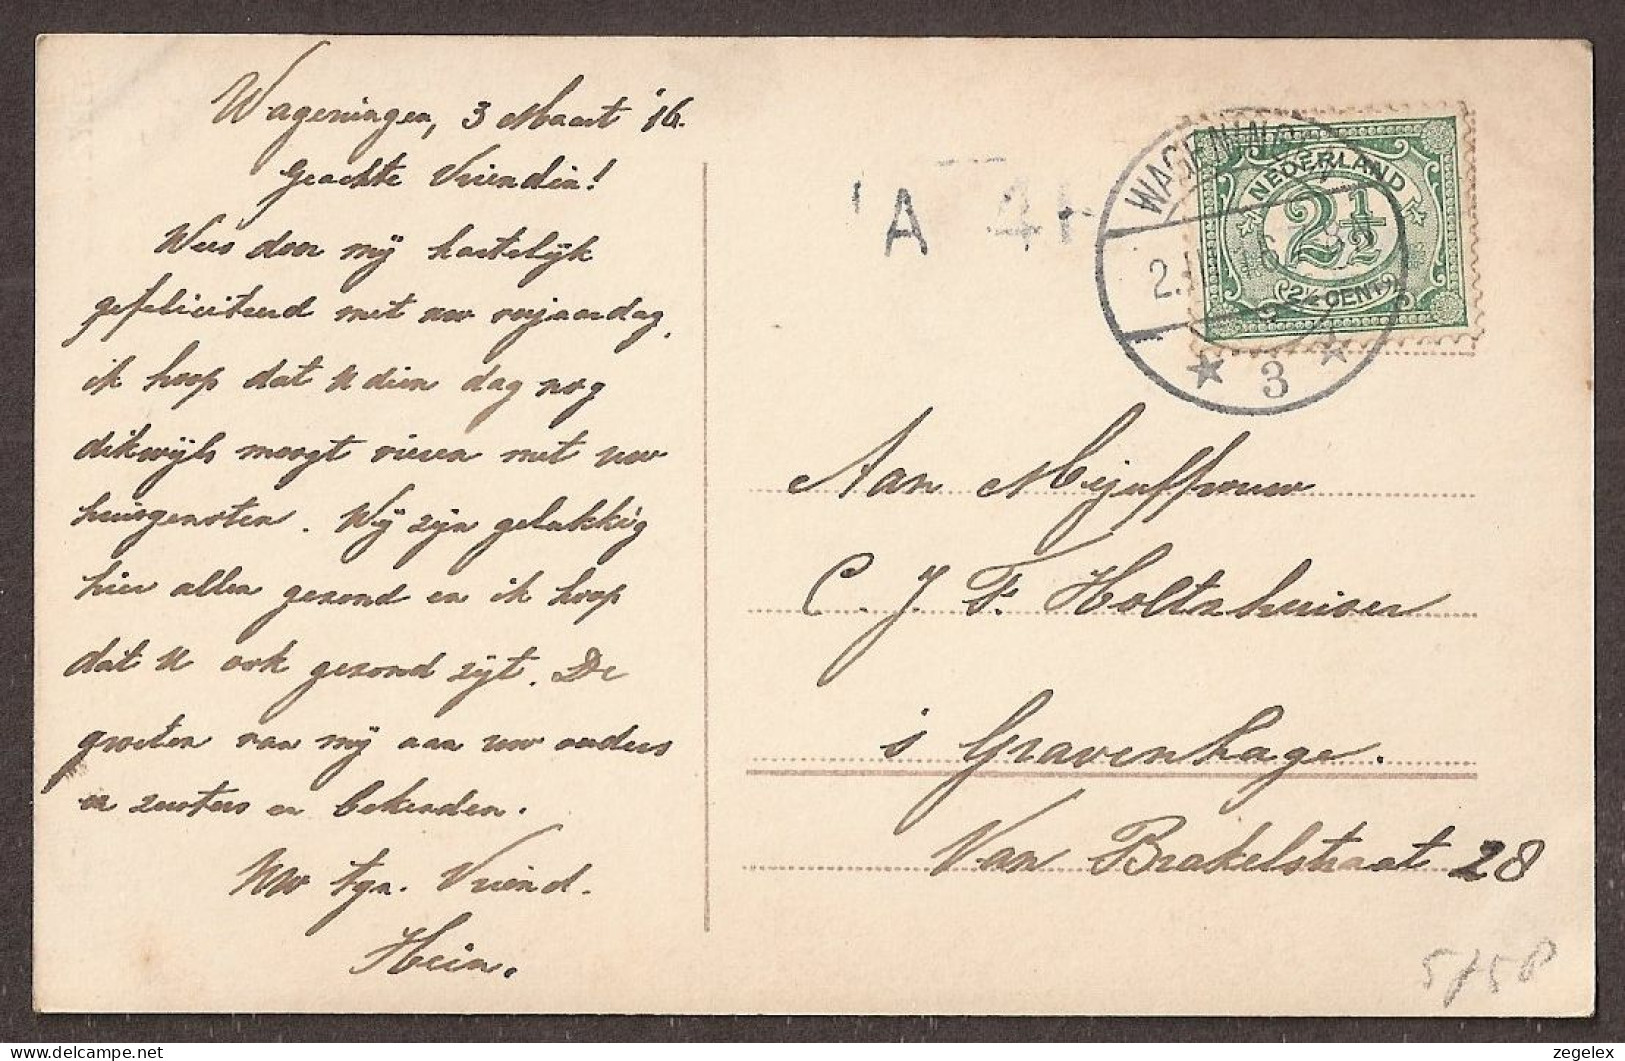 Wageningen, 3 Maart '16.
Geachte Vriendin!
Wees door mij hartelijk
gefeliciteerd met uw verjaardag,
ik hoop dat U dien dag nog
dikwijls moogt vieren met uw
huisgenoten. Wij zijn gelukkig
hier allen gezond en ik hoop
dat U ook gezond zijt. De
groeten van mij aan uw ouders
en zusters en bekenden.
Uw tgn. Vriend.
Hein.
A 4
WAGENINGEN
2.
3
NEDERLAND
2 1/2
2½ CENT
Aan Mejuffrouw
C. J. F. Holtzhuisen
s Gravenhage.
Van Brakelstraat 28
5758
zegelex